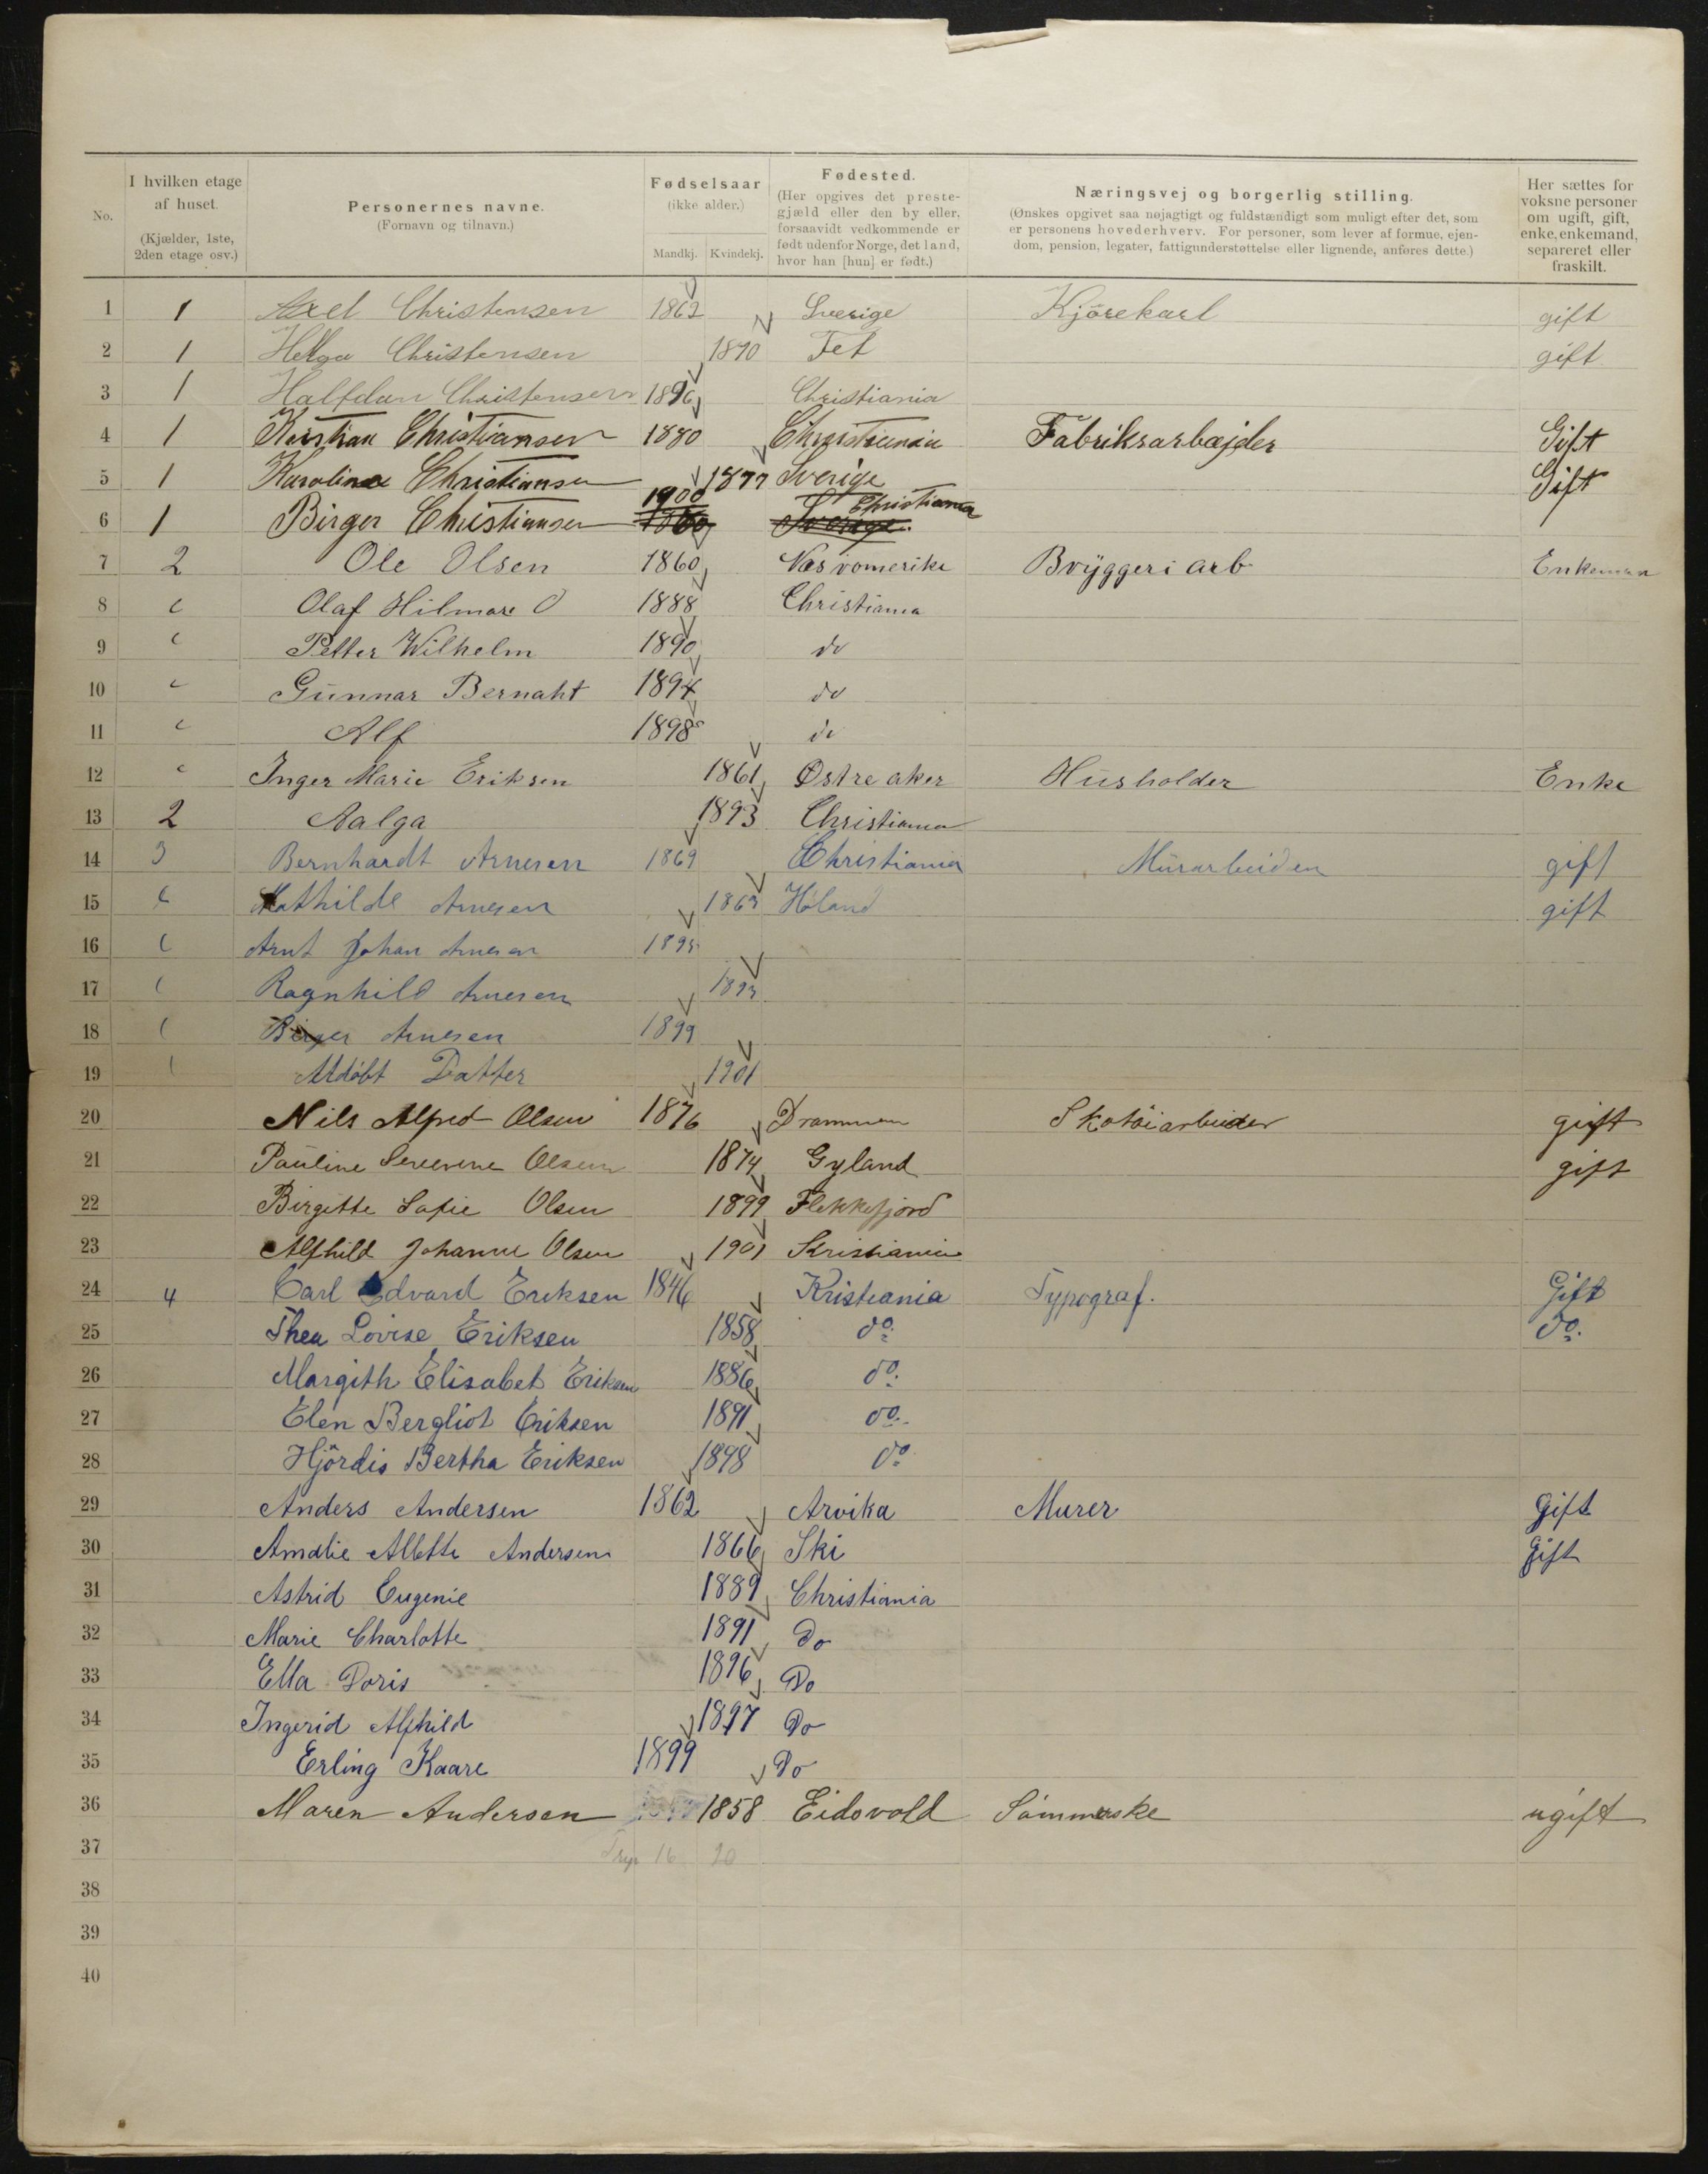 No.
I hvilken etage af huset. (Kjælder, 1ste, 2den etage osv.)
Personernes navne. (Fornavn og tilnavn.)
Fødselsaar (ikke alder.) Mandkj. Kvindekj.
Fødested. (Her opgives det prestegjæld eller den by eller, forsaavidt vedkommende er født udenfor Norge, det land, hvor han [hun] er født.)
Næringsvej og borgerlig stilling. (Ønskes opgivet saa nøjagtigt og fuldstændigt som muligt efter det, som er personens hovederhverv. For personer, som lever af formue, ejendom, pension, legater, fattigunderstøttelse eller lignende, anføres dette.)
Her sættes for voksne personer om ugift, gift, enke, enkemand, separeret eller fraskilt.
1 1 Axel Christensen 1862 Sverige Kjørekarl gift
2 1 Helga Christensen 1870 Fet gift
3 1 Halfdan Christensen 1896 Christiania
4 1 Kristian Christiansen 1880 Christiania Fabriksarbæjder Gift
5 1 Karoline Christiansen 1877 Sverige Gift
6 1 Birger Christiansen 1900 Christiania
7 2 Ole Olsen 1860 Næs romerike Bryggeri arb Enkeman
8 " Olaf Hilmar O 1888 Christiania
9 " Petter Wilhelm 1890 do
10 " Gunnar Bernaht 1894 do
11 " Alf 1898 do
12 " Inger Marie Eriksen 1861 Østre aker Husholder Enke
13 2 Aalga 1893 Christiania
14 3 Bernhardt Arnesen 1869 Christiania Murarbeider gift
15 " Mathilde Arnesen Høland gift
16 " Arnt Johan Arnesen
17 " Ragnhild Arnesen
18 " Birger Arnesen 1899
19 " Udøbt Datter 1901
20 Nils Alfred Olsen 1876 Drammen Skotøiarbeider gift
21 Pauline Severine Olsen 1874 Gyland gift
22 Birgitte Sofie Olsen 1899 Flekkefjord
23 Alfhild Johanne Olsen 1901 Kristiania
24 4 Carl Edvard Eriksen 1846 Kristiania Typograf. Gift
25 Thea Lovise Eriksen 1858 do. do.
26 Margith Elisabet Eriksen 1886 do.
27 Elen Bergliot Eriksen 1891 do.
28 Hjørdis Bertha Eriksen 1898 do
29 Anders Andersen 1862 Arvika Murer Gift
30 Amalie Alette Andersen 1866 Ski Gift
31 Astrid Eugenie 1889 Christiania
32 Marie Charlotte 1891 Do
33 Ella Doris 1896 Do
34 Ingerid Alfhild 1897 Do
35 Erling Kaare 1899 Do
36 Maren Andersen 1858 Eidsvold Sømmerske ugift
37 16 20
38
39
40